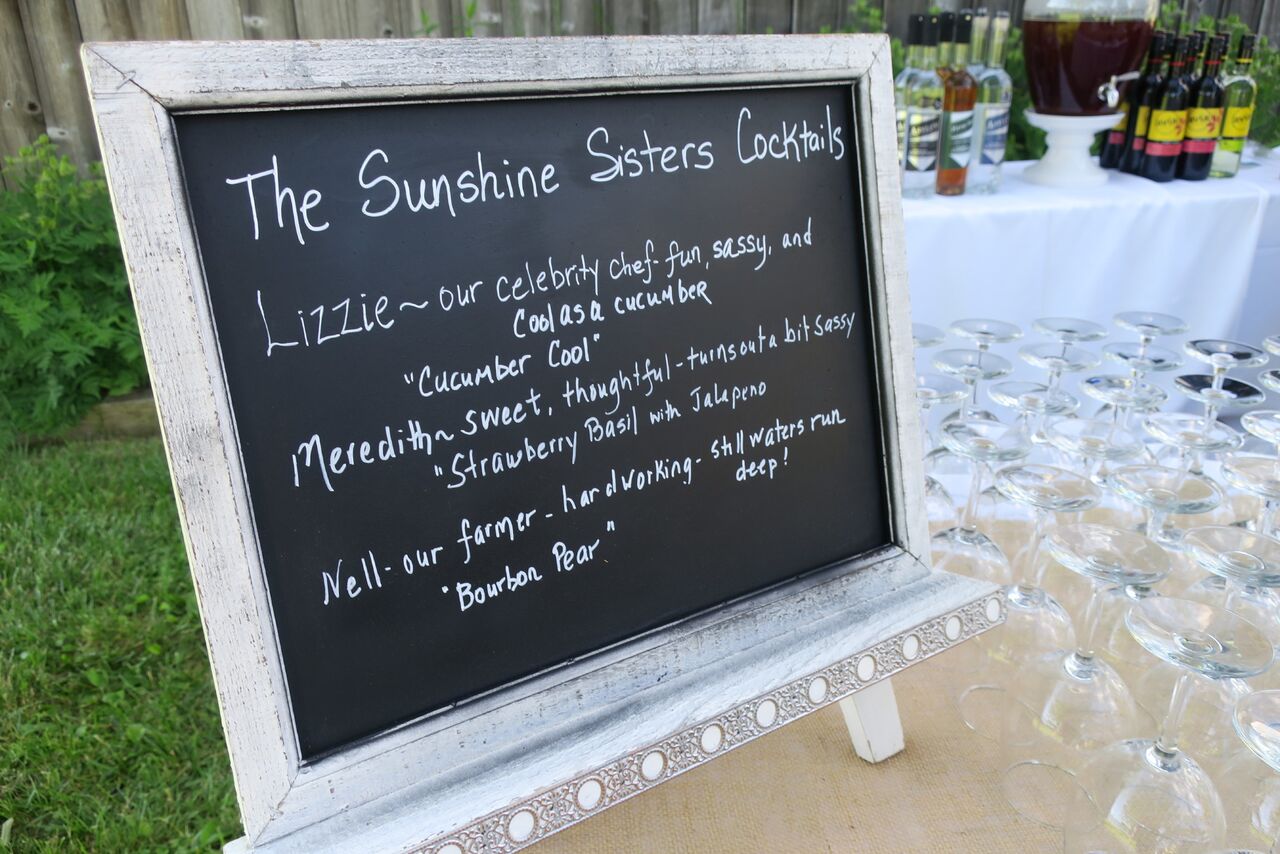 The Sunshine Sisters Cocktails
Lizzie ~ our celebrity chef - fun, sassy, and
Cool as a cucumber
"Cucumber Cool"
Meredith ~ sweet, thoughtful - turns out a bit sassy
"Strawberry Basil with Jalapeno
Nell - our farmer - hardworking - still waters run
deep!
"Bourbon Pear"